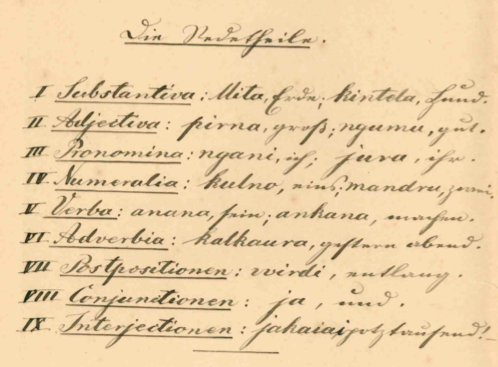 Die Redetheile.
I Substantiva: Mita, Erde. kintela, Hund.
II Adjectiva: pirna, groß; ngumu, gut.
III Pronomina: ngani, ich; jura, ihr.
IV Numeralia: kulno, eins; mandru, zwei.
V Verba: anana, sein; ankana, machen.
VI Adverbia: kalkaura, gestern abend.
VII Postpositionen: wirdi, entlang.
VIII Conjunctionen: ja, und.
IX Interjectionen: jakaiai, potztausend!